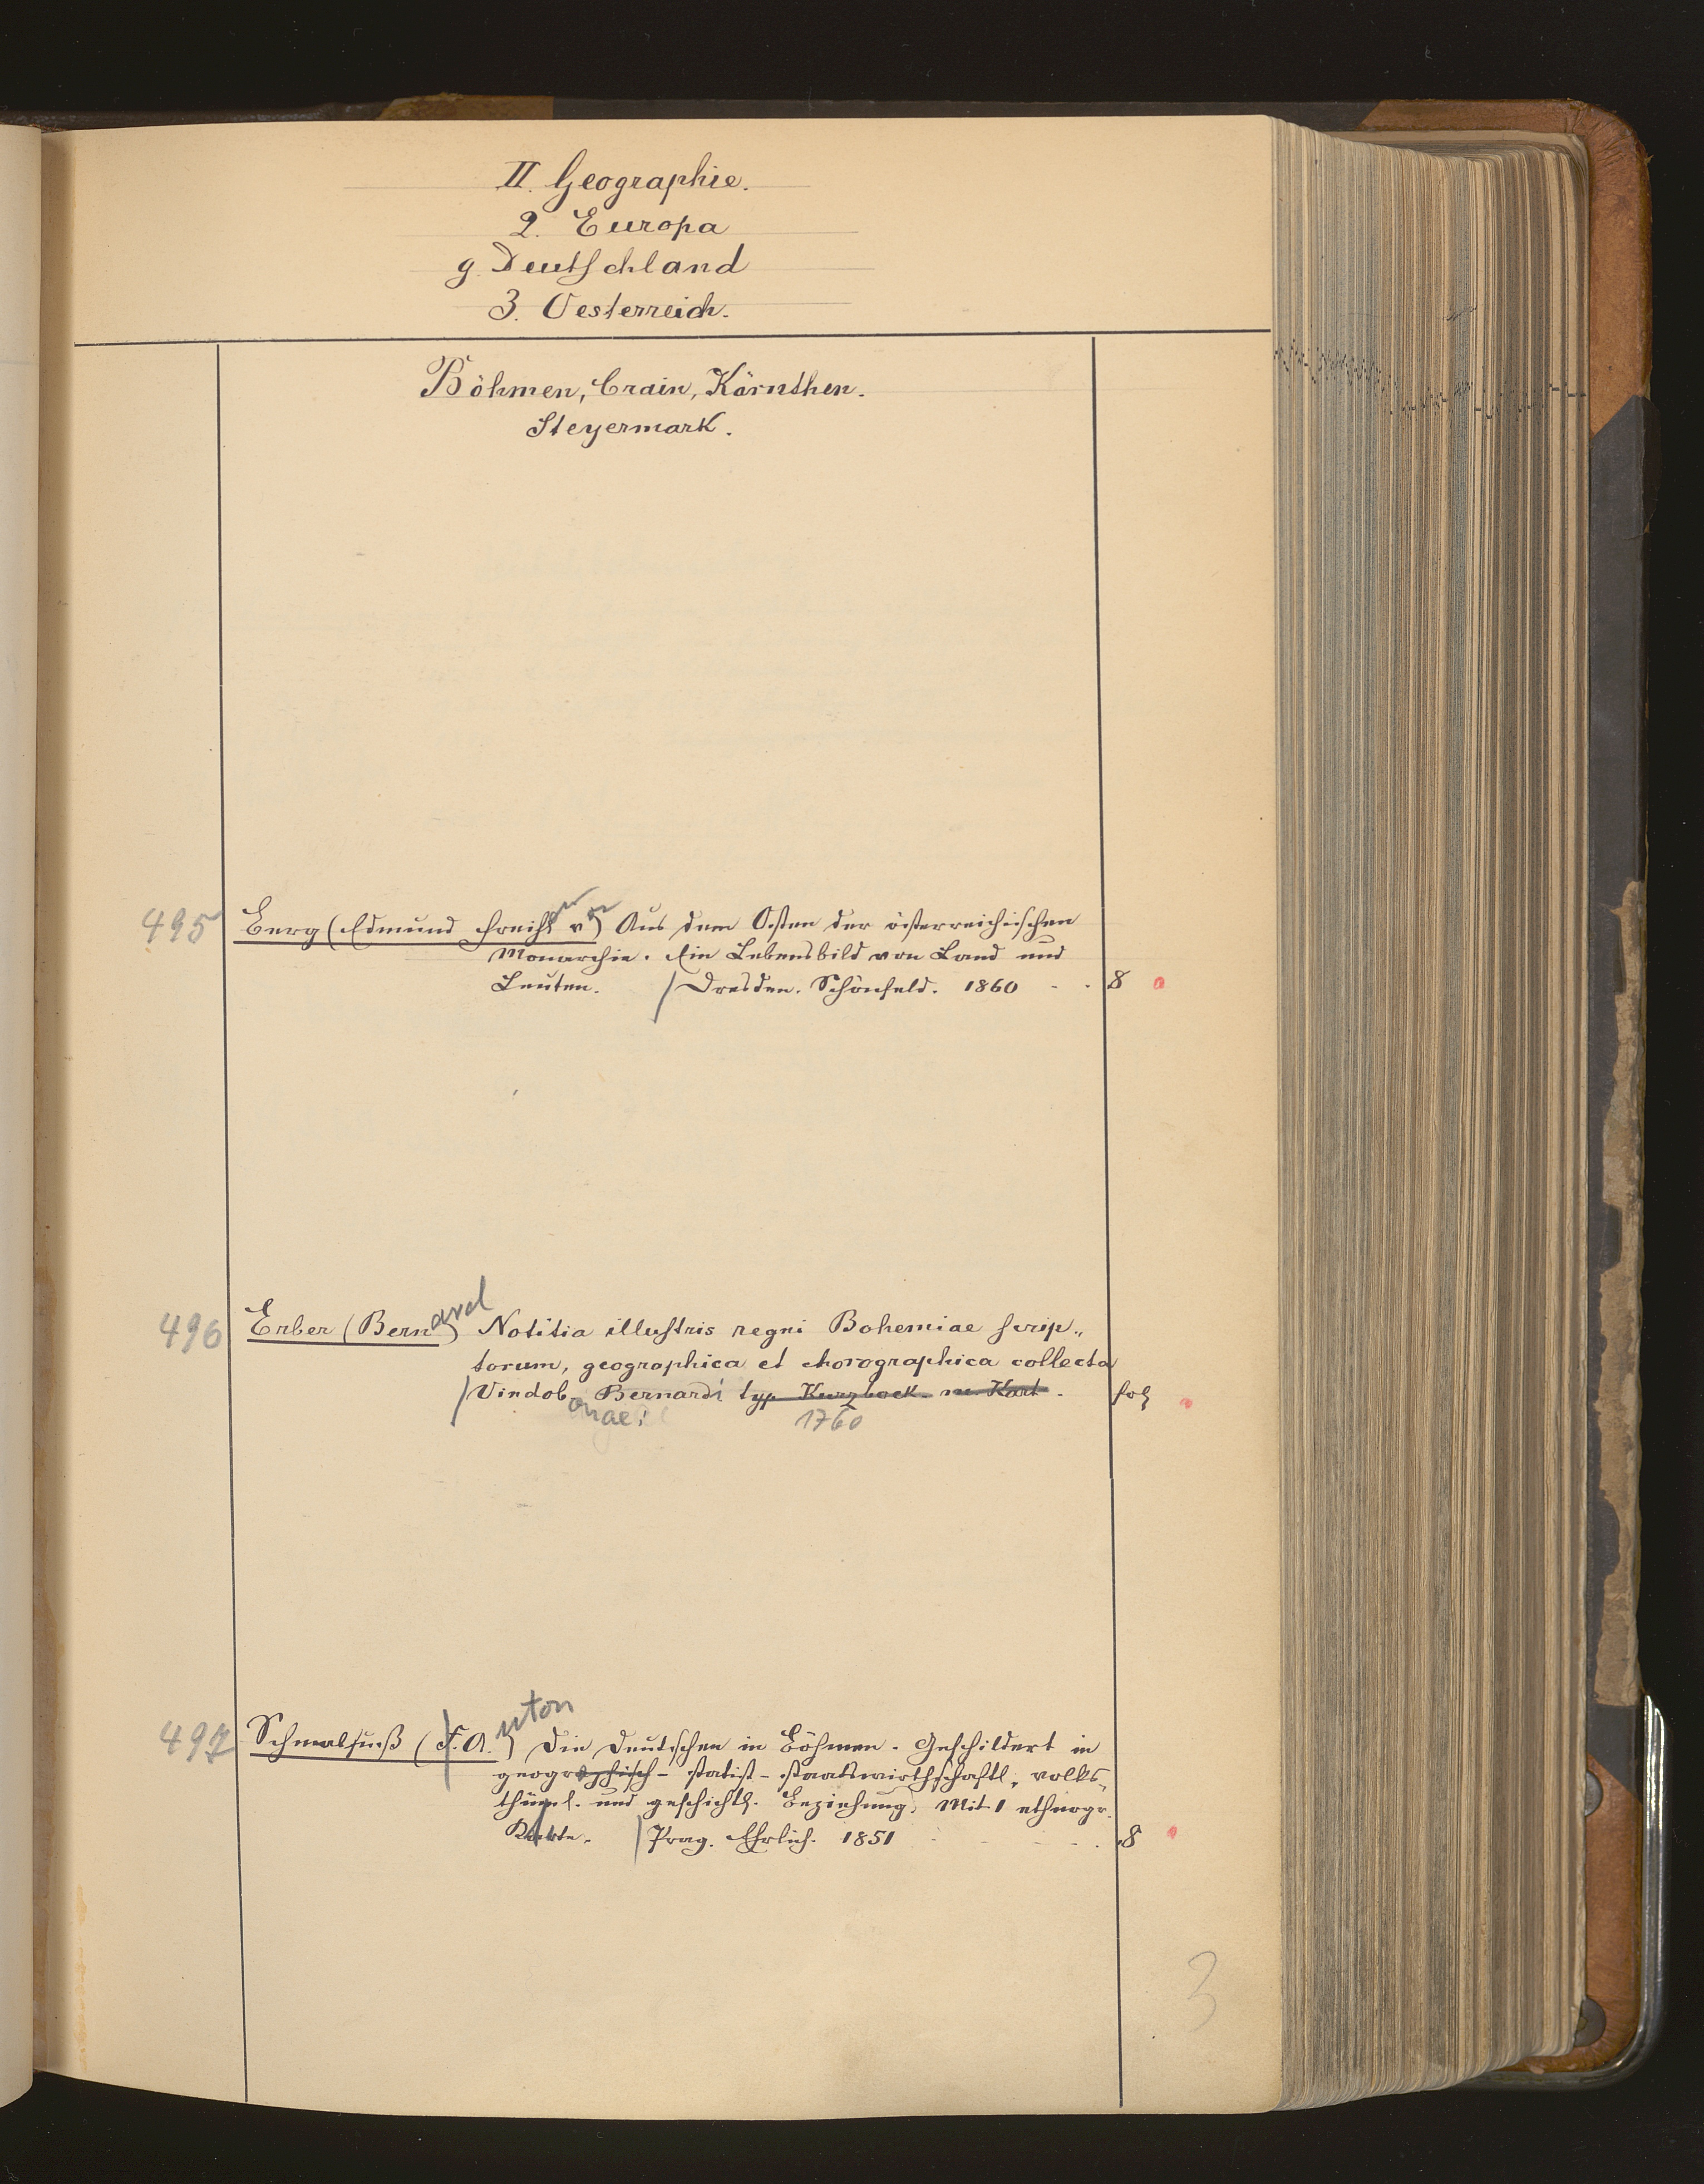 II. Geographie.
2. Europa
g. Deutschland
3. Oesterreich.
Böhmen, Crain, Kärnthen.
Steyermark.
495 Berg (Edmund Freih v) Aus dem Osten der österreichischen
Monarchie. Ein Lebensbild von Land und
Leuten. / Dresden. Schönfeld. 1860 - . 8
ard
496 Erber (Bern) Notitia illustris regni Bohemiae scrip„
torum, geographica et chorographica collecta
/ Vindob. Bernardi typ Kurzboek. m. Kart. fol
onae. 1760
nton
497 Schmalfuß (F. A.) Die Deutschen in Böhmen. Geschildert in
geographisch- statist- staatswirthschaftl., volks„
thüml. und geschichtl. Beziehung. Mit 1 ethnogr.
Karte. / Prag. Ehrlich. 1851 - - - . 8
3